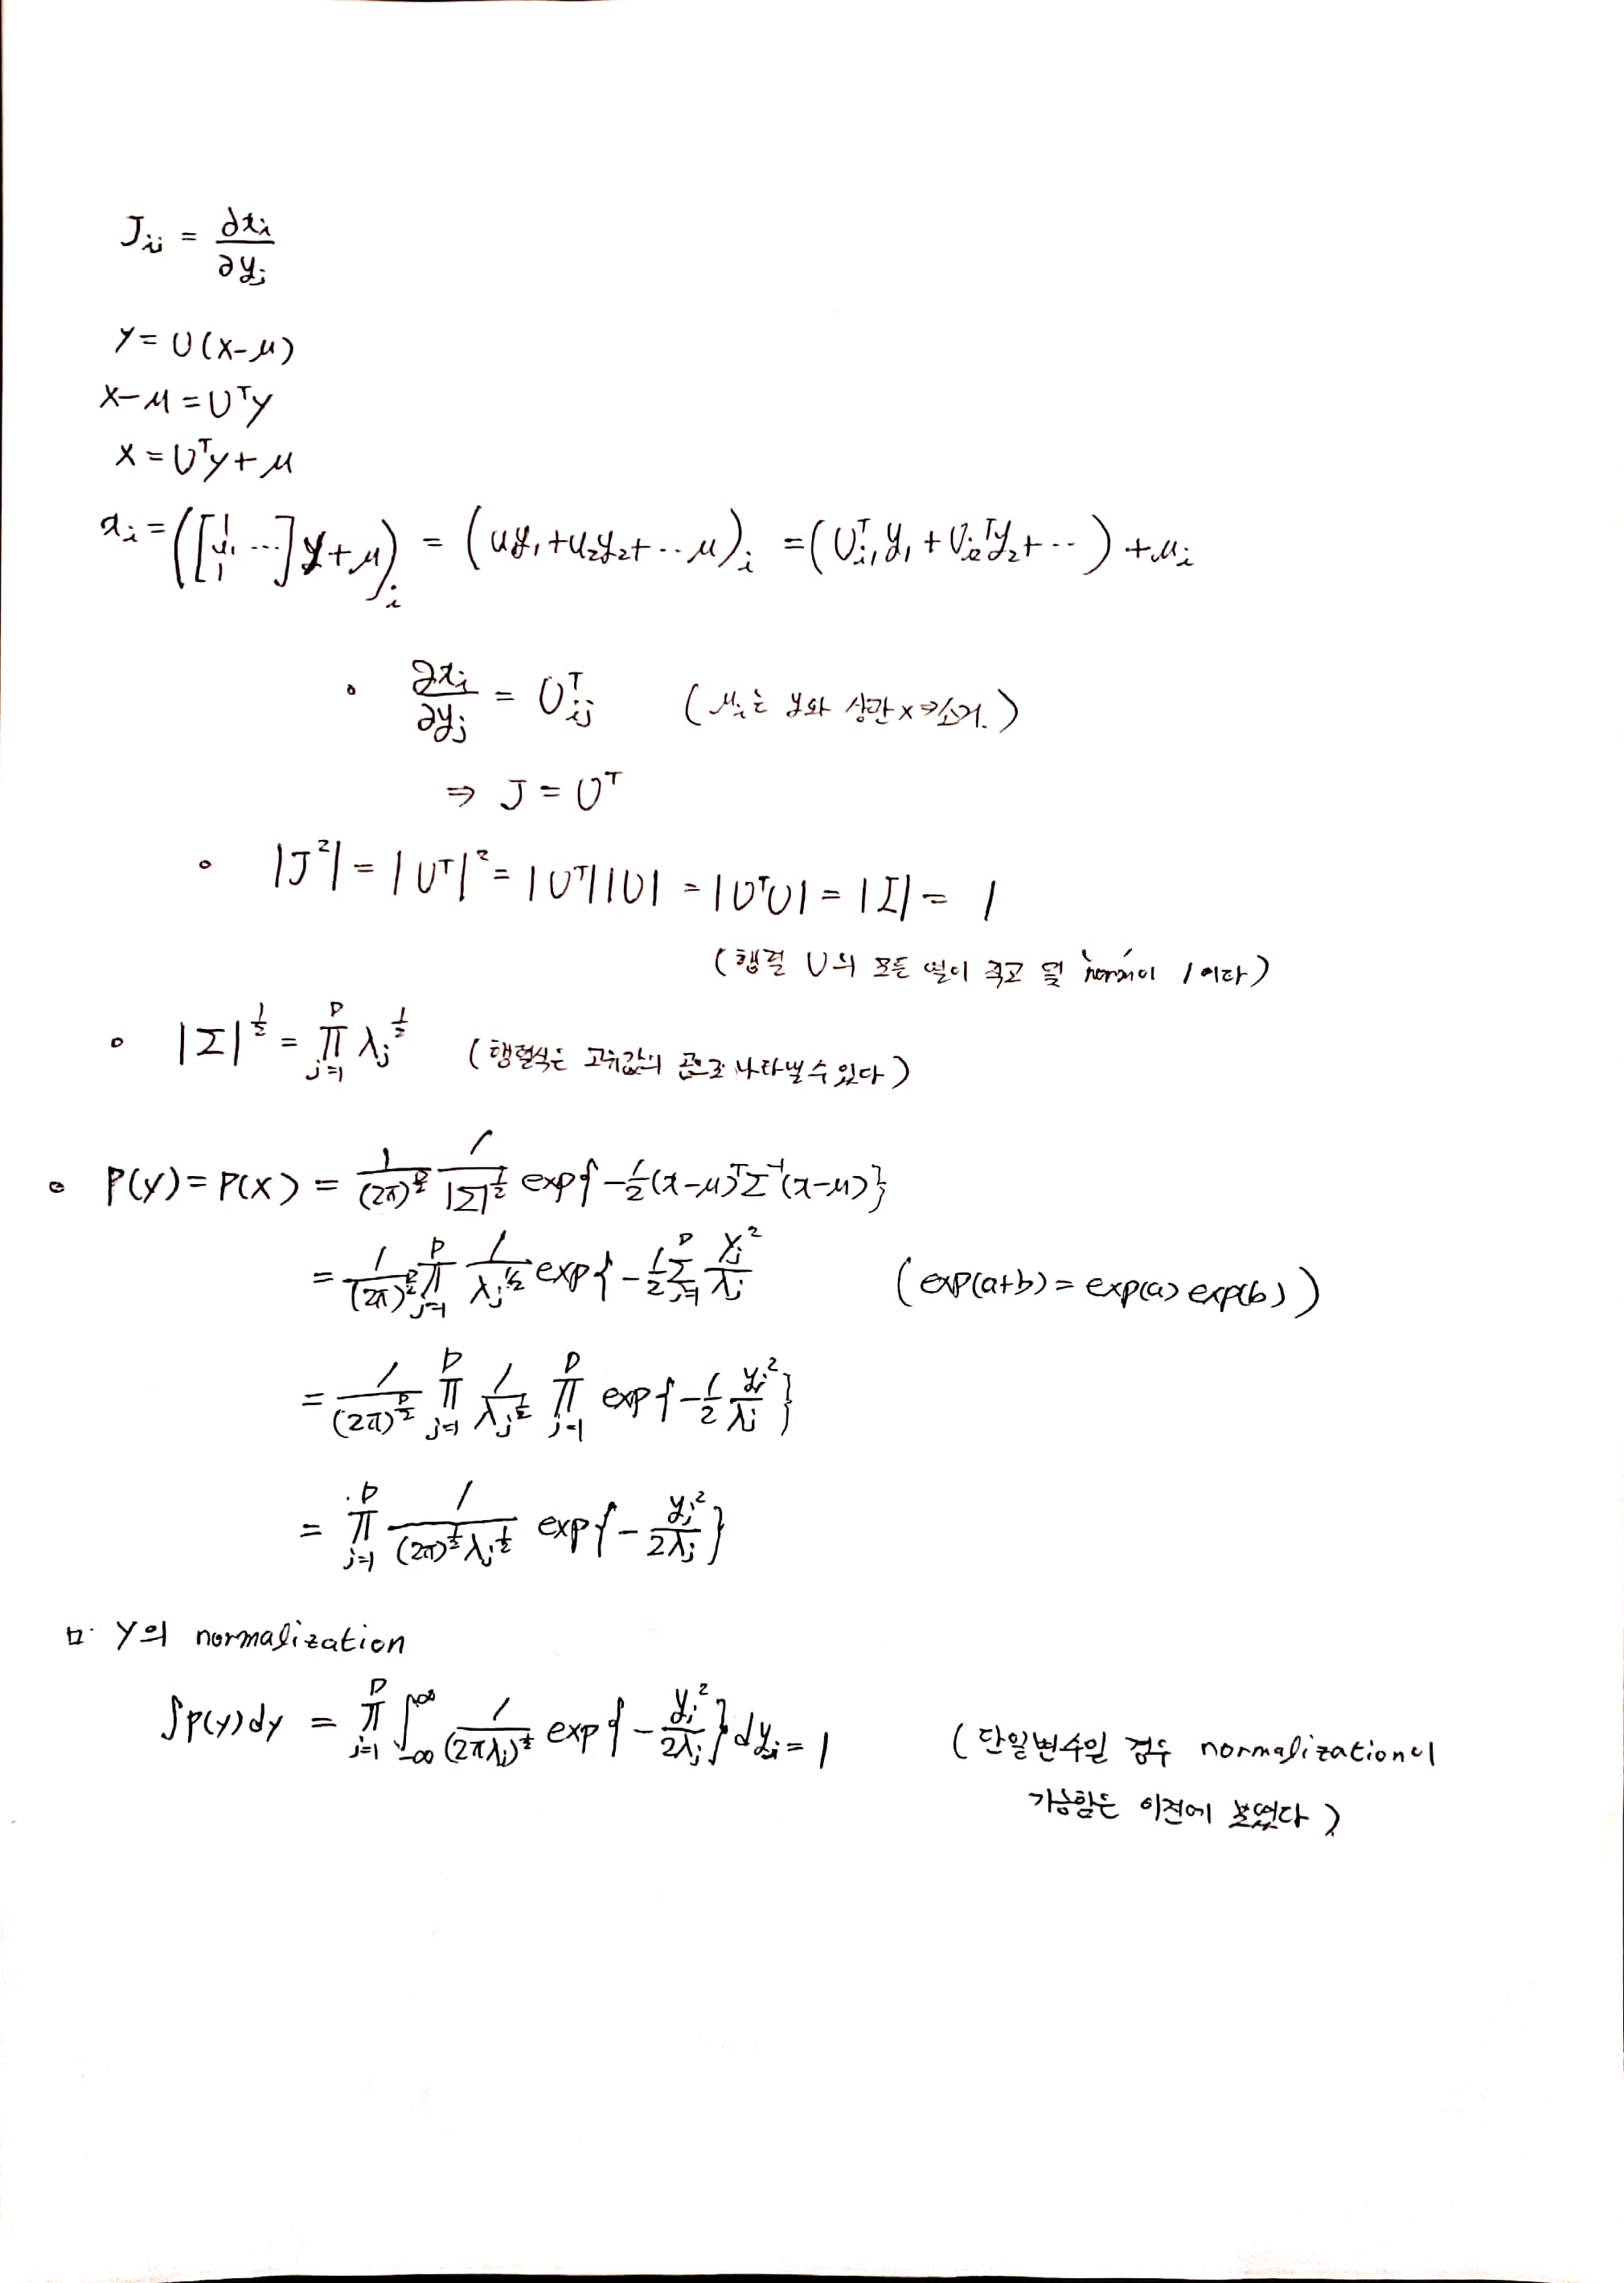 J_ij = ∂x_i / ∂y_j
y = U(x-μ)
x-μ = U^T y
x = U^T y + μ
x_i = ([u_1 ...] y + μ)_i = (u y_1 + u_2 y_2 + ... μ)_i = (U^T_i1 y_1 + U_i2^T y_2 + ...) + μ_i
∘ ∂x_i / ∂y_j = U^T_ij (μ_i는 y와 상관 x ⇒ 소거.)
⇒ J = U^T
∘ |J^2| = |U^T|^2 = |U^T||U| = |U^T U| = |I| = 1
(행렬 U의 모든 열이 직교 및 norm이 1이다)
∘ |Σ|^(1/2) = ∏_{j=1}^D λ_j^(1/2) (행렬식은 고유값의 곱으로 나타낼 수 있다)
∘ P(y) = P(x) = 1/(2π)^(D/2) 1/|Σ|^(1/2) exp{-1/2 (x-μ)^T Σ^-1 (x-μ)}
= 1/(2π)^(D/2) ∏_{j=1}^D 1/λ_j^(1/2) exp{-1/2 Σ_{j=1}^D y_j^2/λ_j (exp(a+b) = exp(a) exp(b))
= 1/(2π)^(D/2) ∏_{j=1}^D 1/λ_j^(1/2) ∏_{j=1}^D exp{-1/2 y_j^2/λ_j}
= ∏_{j=1}^D 1/((2π)^(1/2) λ_j^(1/2)) exp{- y_j^2/2λ_j}
□ y의 normalization
∫P(y)dy = ∏_{j=1}^D ∫_{-∞}^∞ 1/(2πλ_j)^(1/2) exp{- y_j^2/2λ_j} dy_j = 1 (단일변수일 경우 normalization이
가능함은 이전에 보였다)